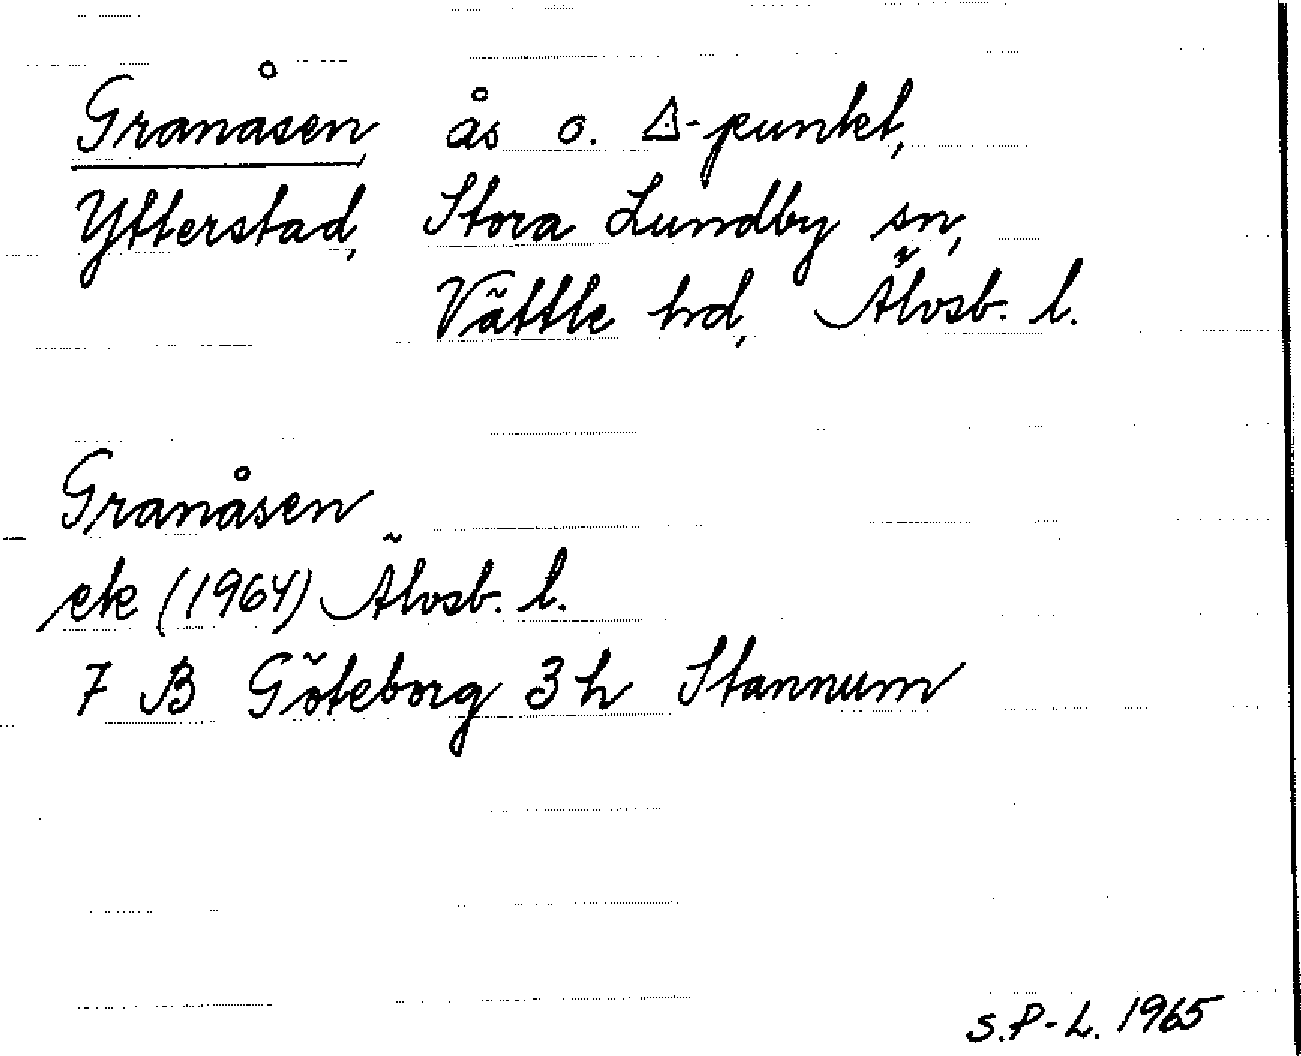 Granåsen ås o. △-punkt,
Ytterstad, Stora Lundby sn,
Vättle hd, Älvsb. l.
Granåsen
ek (1964) Älvsb. l.
7 B Göteborg 3 h Stannum
S.P-L. 1965